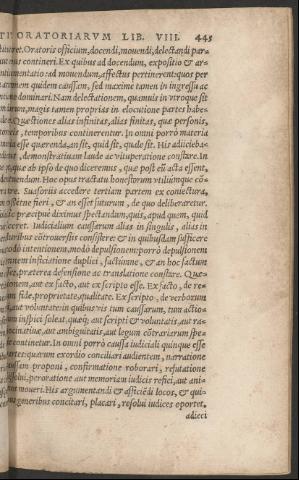 ORATORIARVM LIB. VIII. 445
Oratoris officium, docendi, mouendi, delectandi par-
contineri. Ex quibus ad docendum, expositio & ar-
gumentatio: ad mouendum, affectus pertinerent: quos per
omnem quidem caussam, sed maxime tamen in ingressu ac
dominari. Nam delectationem, quamuis in vtroque sit
magis tamen proprias in elocutione partes habe-
Quæstiones alias infinitas, alias finitas, quæ personis,
locis, temporibus continerentur. In omni porrò materia
esse quærenda, an sit, quid sit, quale sit. His adijcieba-
demonstratiuam laude ac vituperatione constare. In
quæ ab ipso de quo diceremus, quæ post eum acta essent,
Hoc opus tractatu honestorum vtiliumque con-
Suasorijs accedere tertiam partem ex coniectura,
fieri, & an esset futurum, de quo deliberaretur.
præcipue diximus spectandum, quis, apud quem, quid
diceret. Iudicialium caussarum alias in singulis, alias in
controuersijs consistere: & in quibusdam sufficere
modò intentionem, modò depulsionem porrò depulsionem
inficiatione duplici, factumne, & an hoc factum
præterea defensione ac translatione constare. Quæ-
aut ex facto, aut ex scripto esse. Ex facto, de re-
fide, proprietate, qualitate. Ex scripto, de verborum
aut voluntate: in quibus vis tum caussarum, tum actio-
inspici soleat, quæque aut scripti & voluntatis, aut ra-
aut ambiguitatis, aut legum contrariarum spe-
continetur. In omni porrò caussa iudiciali quinque esse
partes: quarum exordio conciliari audientem, narratione
caussam proponi, confirmatione roborari, refutatione
dissolui, peroratione aut memoriam iudicis refici, aut ani-
moueri. His argumentandi & afficiendi locos, & qui-
generibus concitari, placari, resolui iudices oporteret.
adieci